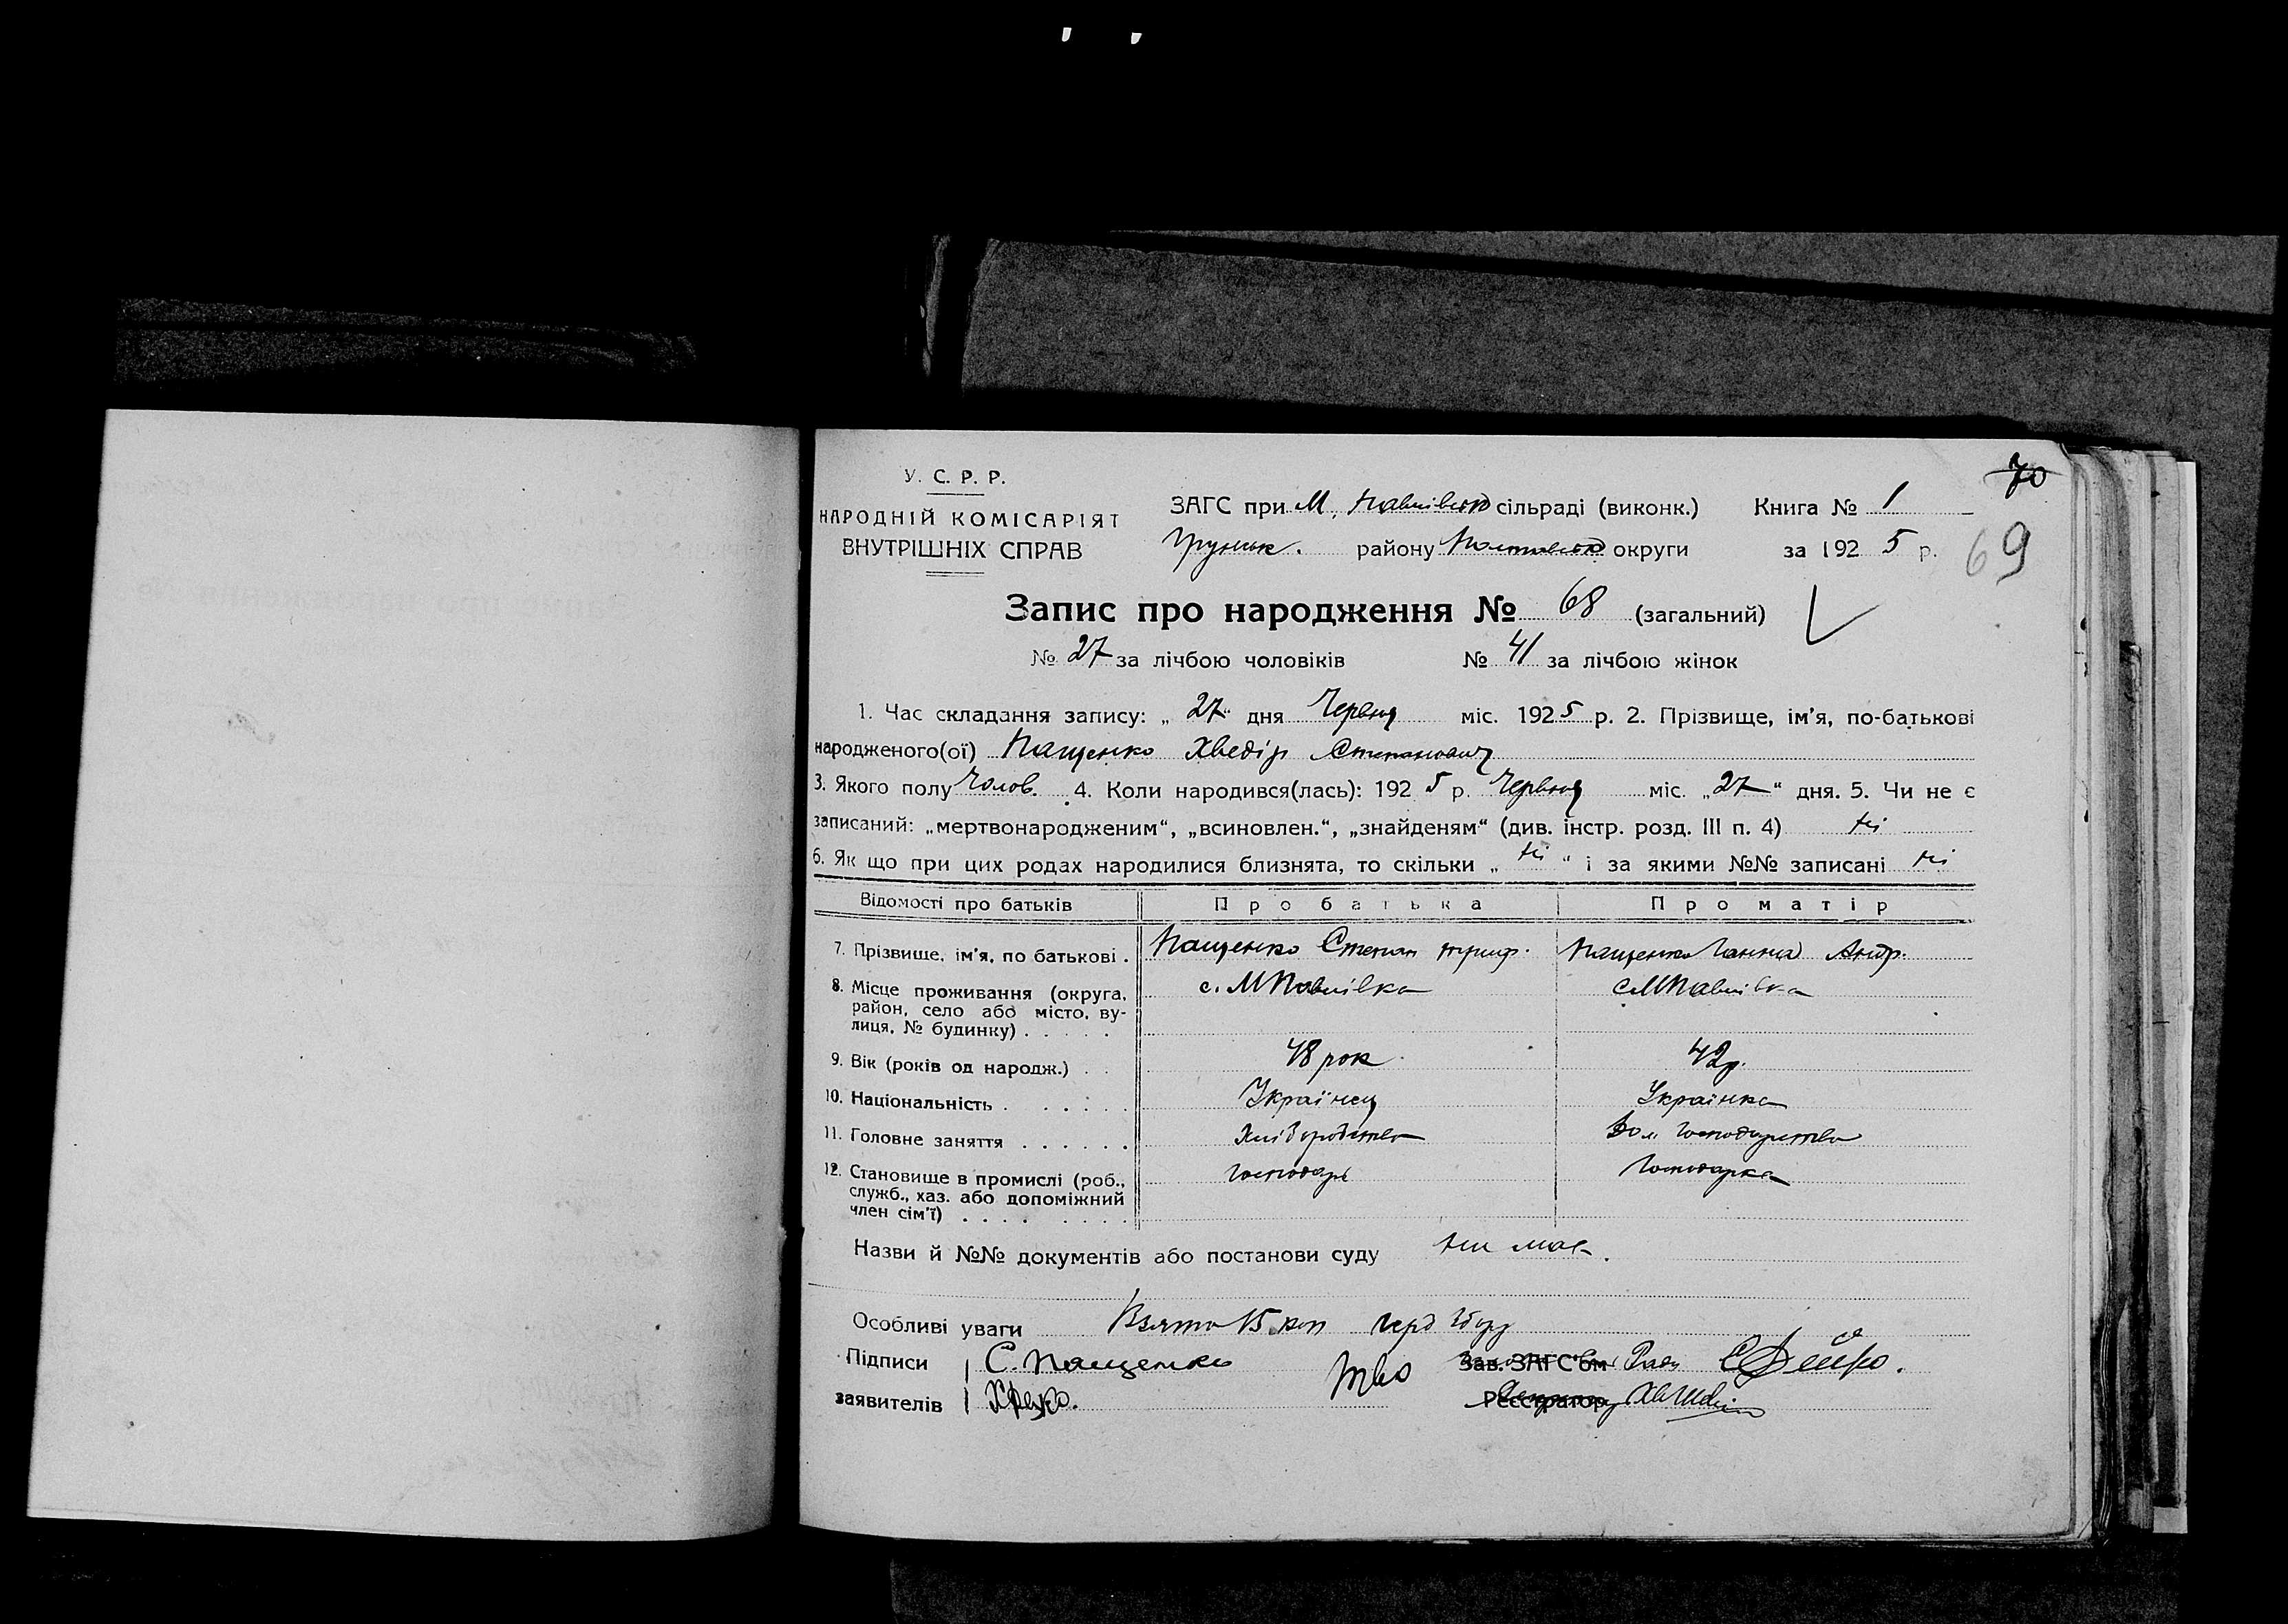 70
У. С. Р. Р.
НАРОДНІЙ КОМІСАРІЯТ
ВНУТРІШНІХ СПРАВ
ЗАГС при М. Павлівськ сільраді (виконк.) Книга № 1
Грунськ. району Полтавськ округи за 1925 р.
69
Запис про народження № 68 (загальний)
№ 27 за лічбою чоловіків № 41 за лічбою жінок
1. Час складання запису: „27“ дня Червня міс. 1925 р. 2. Прізвище, ім’я, по-батькові
народженого(ої) Пащенко Хведір Степанович
3. Якого полу Чолов. 4. Коли народився(лась): 1925 р. Червня міс. „27“ дня. 5. Чи не є
записаний: „мертвонародженим“, „всиновлен.“, „знайденям“ (див. інстр. розд. III п. 4) ні
6. Як що при цих родах народилися близнята, то скільки „ні“ і за якими №№ записані ні
Відомості про батьків Про батька Про матір
7. Прізвище, ім’я, по батькові . Пащенко Степан Триф. Пащенко Ганна Андр.
8. Місце проживання (округа, с. МПавлівка с МПавлівка
район, село або місто, ву-
лиця, № будинку) . . . . .
9. Вік (років од народж.) . . 48 рок 42 р.
10. Національність . . . . . Українец Українка
11. Головне заняття . . . . . . Хліборобство Дом господарство
12. Становище в промислі (роб., господарь господарка
служб., хаз. або допоміжний
член сім’ї) . . . . . . . .
Назви й №№ документів або постанови суду не має.
Особливі уваги Взято 15 коп герб збору
Підписи С. Пащенко Зав. ЗАГС’ом
заявителів Реєстратор